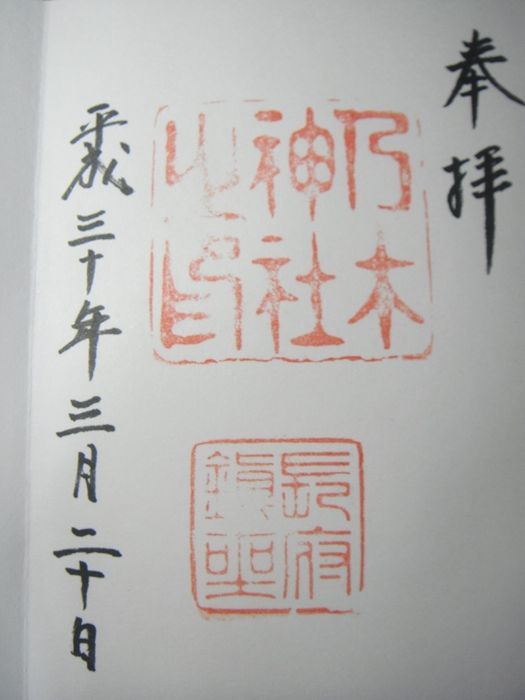 奉拝
乃木
神社
之印
長府
鎮坐
平成三十年三月二十日